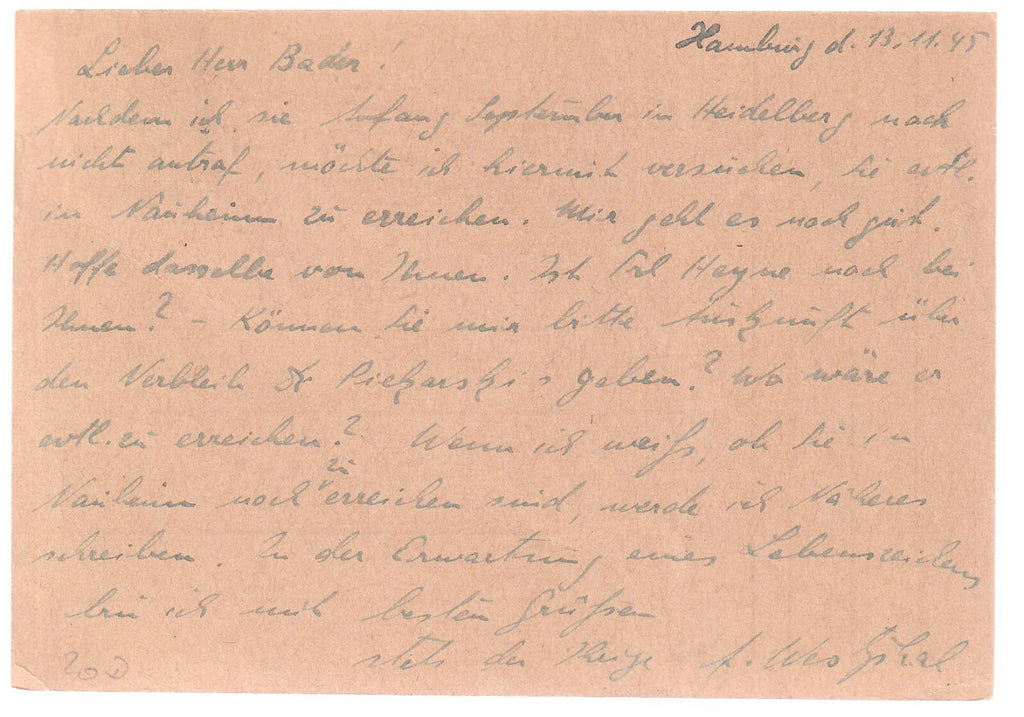 Hamburg d. 13.11.45
Lieber Herr Bader!
Nachdem ich sie Anfang September in Heidelberg noch
nicht antraf, möchte ich hiermit versuchen, Sie evtl.
in Nauheim zu erreichen. Mir geht es noch gut.
Hoffe dasselbe von Ihnen. Ist Frl Heyne noch bei
Ihnen? – Können Sie mir bitte Auskunft über
den Verbleib Dr Piekarski's geben? Wo wäre er
evtl. zu erreichen? Wenn ich weiß, ob Sie in
Nauheim noch zu erreichen sind, werde ich Näheres
schreiben. In der Erwartung eines Lebenszeichens
bin ich mit besten Grüßen
stets der Ihrige A. Westphal